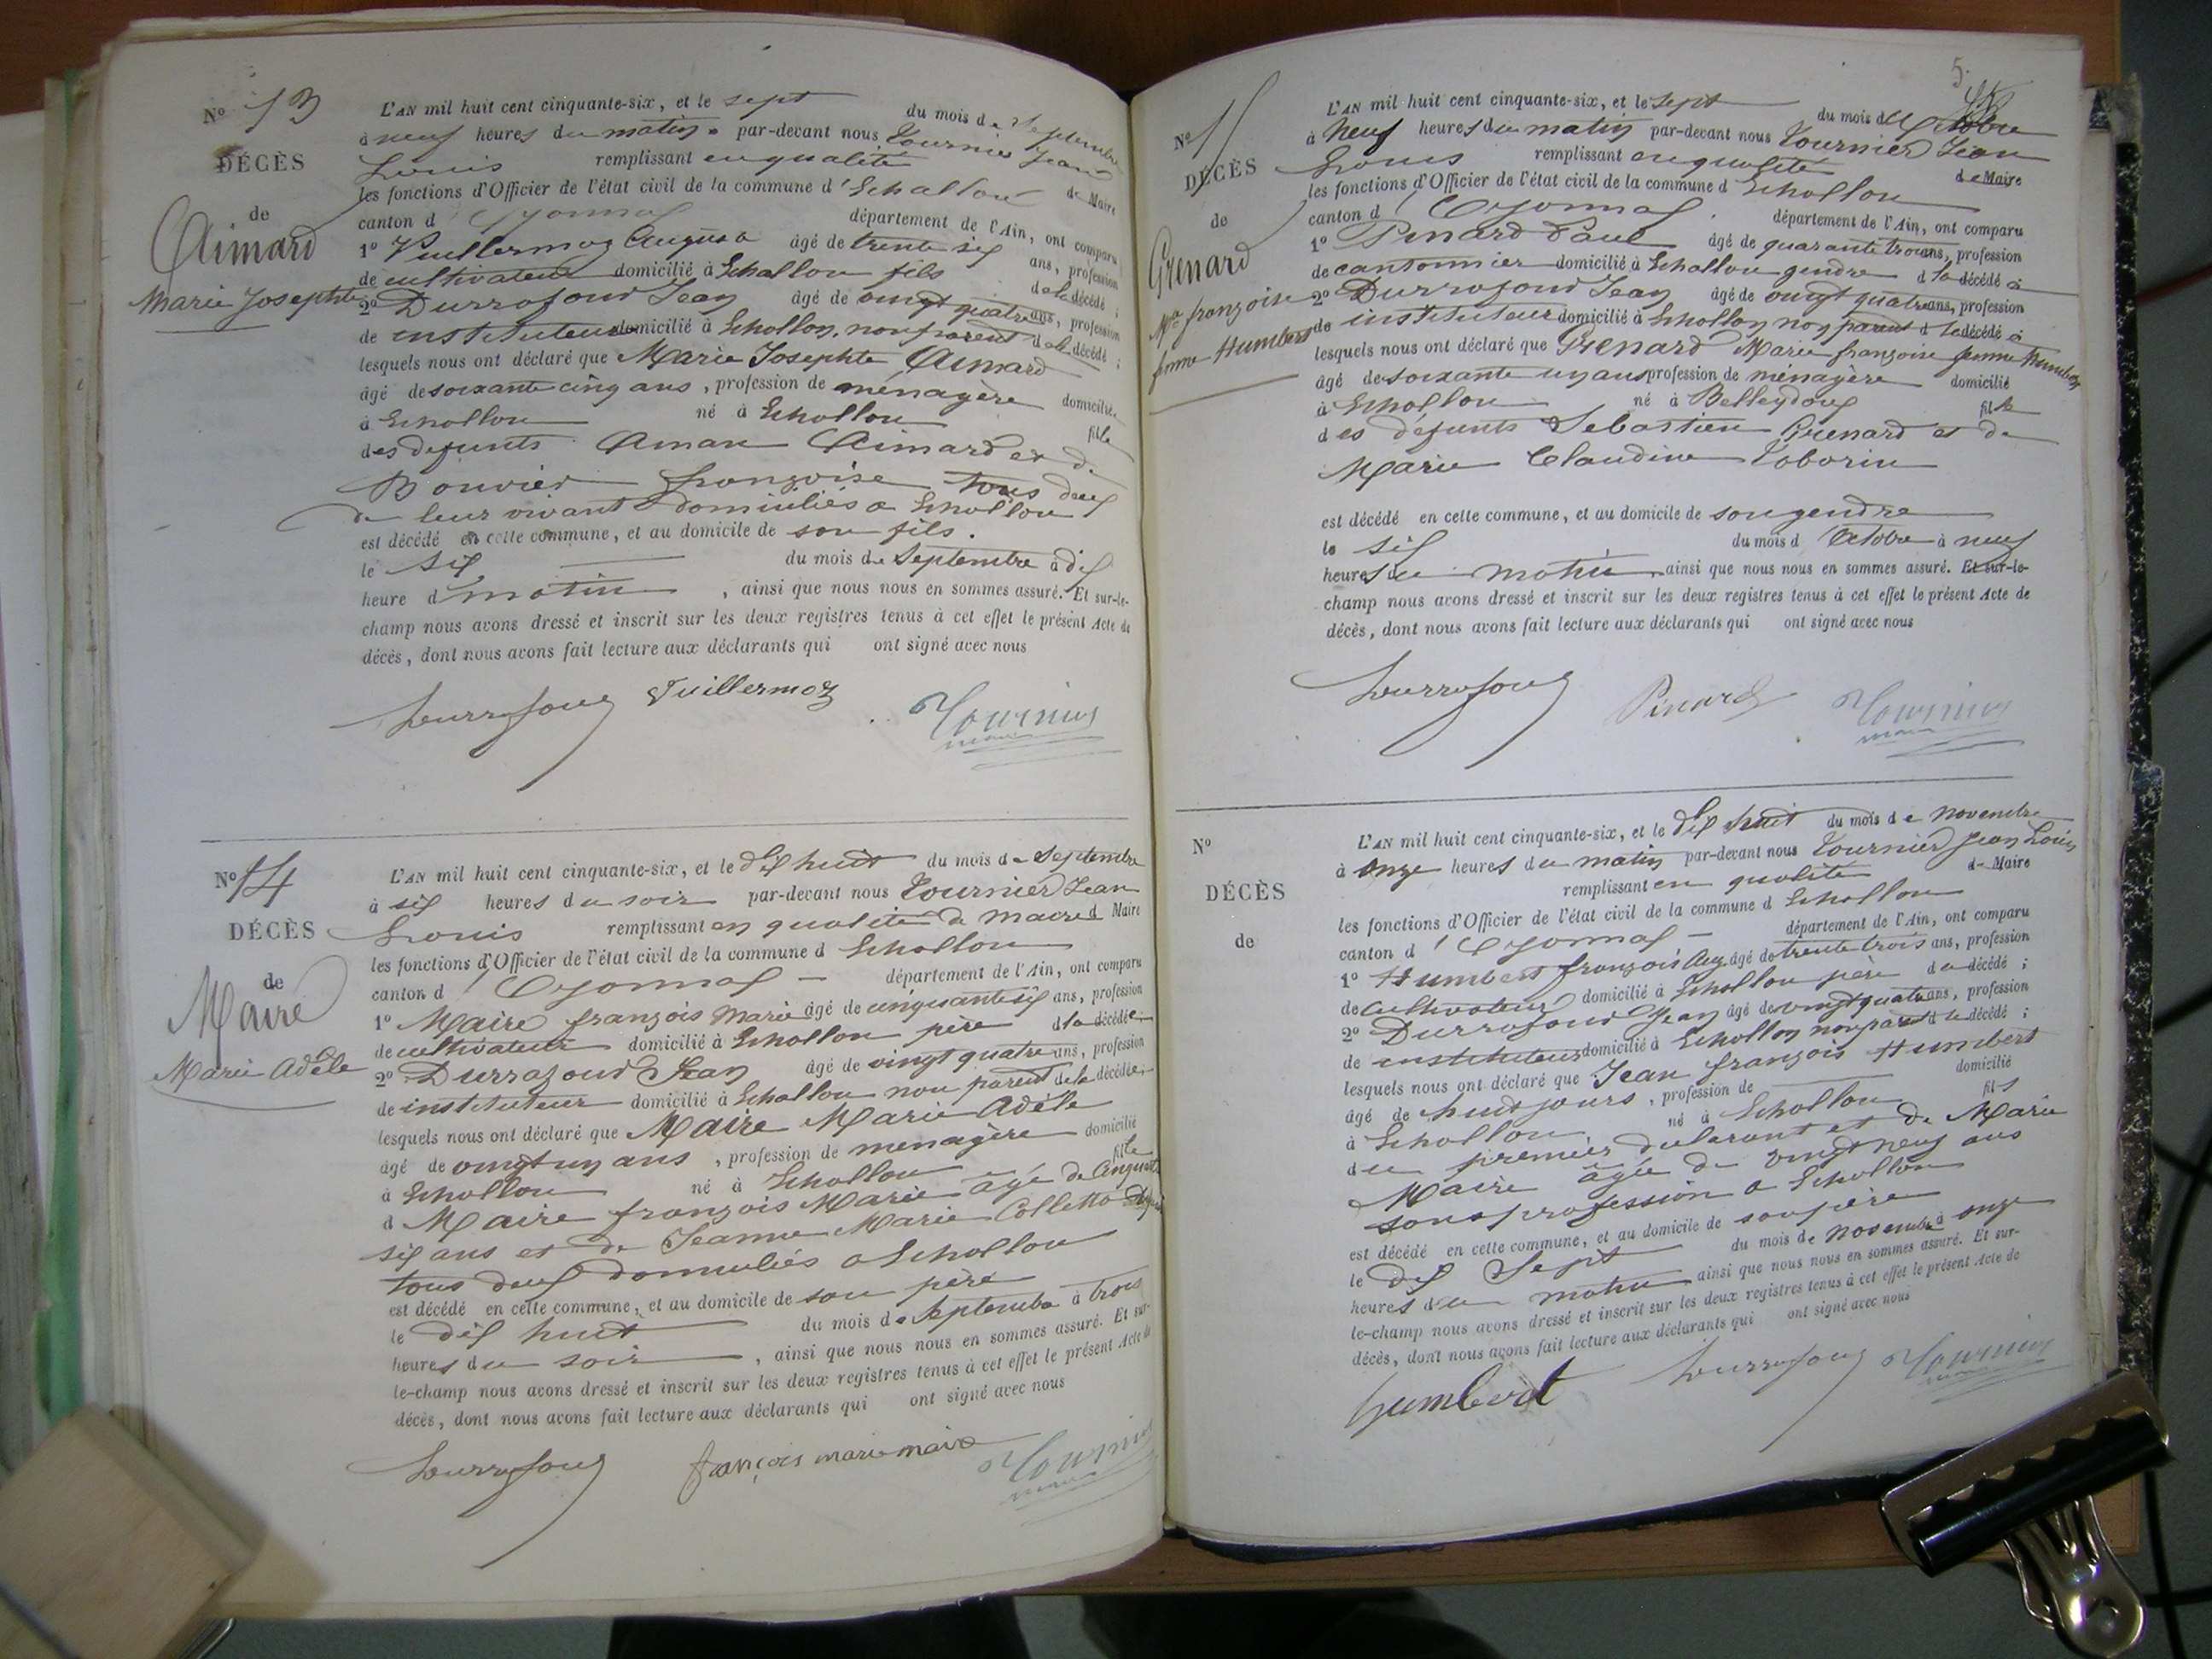 N° 13
DÉCÈS
de
Aimard
Marie Josephte
L'AN mil huit cent cinquante-six, et le sept du mois de Septembre
à neuf heures du matin par-devant nous Tournier Jean
Louis remplissant en qualité de Maire
les fonctions d'Officier de l'état civil de la commune d'Echallon
canton d'Oyonnax département de l'Ain, ont comparu
1° Vuillermoz August âgé de trente six ans, profession
de cultivateur domicilié à Echallon fils de la décédé ;
2° Durrafour Jean âgé de vingt quatre ans, profession
de instituteur domicilié à Echallon, non parent de la décédé ;
lesquels nous ont déclaré que Marie Josephte Aimard
âgé de soixante cinq ans, profession de ménagère domicilié
à Echallon né à Echallon fille
des defunts Aimard et de
Bouvier françoise tous deux
de leur vivant domiciliés a Echallon
est décédé en cette commune, et au domicile de son fils.
le six du mois de Septembre à dix
heure d matin, ainsi que nous nous en sommes assuré. Et sur-le-
champ nous avons dressé et inscrit sur les deux registres tenus à cet effet le présent Acte de
décès, dont nous avons fait lecture aux déclarants qui ont signé avec nous
Durrafour Vuillermoz Tournier
maire
N° 14
DÉCÈS
de
Maire
Marie Adèle
L'AN mil huit cent cinquante-six, et le dix huit du mois de Septembre
à six heures du soir par-devant nous Tournier Jean
Louis remplissant en qualité de maire d Maire
les fonctions d'Officier de l'état civil de la commune d Echallon
canton d'Oyonnax département de l'Ain, ont comparu
1° Maire françois Marie âgé de cinquante six ans, profession
de cultivateur domicilié à Echallon père d la décédée
2° Durrafour Jean âgé de vingt quatre ans, profession
de instituteur domicilié à Echallon non parent de la décédée
lesquels nous ont déclaré que Maire Marie Adèle
âgé de vingt un ans, profession de menagère domicilié
à Echallon né à Echallon fille
d Maire françois Marie âgé de Cinquante
six ans et de Jeanne Marie Colletta
tous deux domiciliés a Echallon
est décédé en cette commune, et au domicile de son père
le dix huit du mois de Septembre à trois
heures du soir, ainsi que nous nous en sommes assuré. Et sur-
le-champ nous avons dressé et inscrit sur les deux registres tenus à cet effet le présent Acte de
décès, dont nous avons fait lecture aux déclarants qui ont signé avec nous
Durrafour françois marie maire Tournier
maire
5.
N° 15
DÉCÈS
de
Grenard
Mie françoise
femme Humbert
L'AN mil huit cent cinquante-six, et le Sept du mois d'Octobre
à Neuf heures du matin par-devant nous Tournier Jean
Louis remplissant en qualité de Maire
les fonctions d'Officier de l'état civil de la commune d Echallon
canton d'Oyonnax département de l'Ain, ont comparu
1° Pinard Paul âgé de quarante trois ans, profession
de cantonnier domicilié à Echallon gendre d la décédé
2° Durrafour Jean âgé de vingt quatre ans, profession
de instituteur domicilié à Echallon non parent d la décédé
lesquels nous ont déclaré que Grenard Marie françoise femme Humbert
âgé de soixante un ans profession de ménagère domicilié
à Echallon né à Belleydoux fille
des défunts Sebastien Grenard et de
Marie Claudine
est décédé en cette commune, et au domicile de son gendre
le six du mois d Octobre à neuf
heures du matin, ainsi que nous nous en sommes assuré. Et sur-le-
champ nous avons dressé et inscrit sur les deux registres tenus à cet effet le présent Acte de
décès, dont nous avons fait lecture aux déclarants qui ont signé avec nous
Durrafour Pinard Tournier
maire
N°
DÉCÈS
de
L'AN mil huit cent cinquante-six, et le dix huit du mois de Novembre
à onze heures du matin par-devant nous Tournier Jean Louis
remplissant en qualité de Maire
les fonctions d'Officier de l'état civil de la commune d Echallon
canton d'Oyonnax département de l'Ain, ont comparu
1° Humbert françois Aug. âgé de trente trois ans, profession
de Cultivateur domicilié à Echallon père du décédé ;
2° Durrafour Jean âgé de vingt quatre ans, profession
de instituteur domicilié à Echallon non parent d le décédé ;
lesquels nous ont déclaré que Jean françois Humbert
âgé de huit jours, profession de domicilié
à Echallon né à Echallon fils
du premier déclarant et de Marie
Maire âgée de vingt neuf ans
sans profession a Echallon
est décédé en cette commune, et au domicile de son père
le dix Sept du mois de Novembre à onze
heures du matin ainsi que nous nous en sommes assuré. Et sur-
le-champ nous avons dressé et inscrit sur les deux registres tenus à cet effet le présent Acte de
décès, dont nous avons fait lecture aux déclarants qui ont signé avec nous
humbert Durrafour Tournier
maire